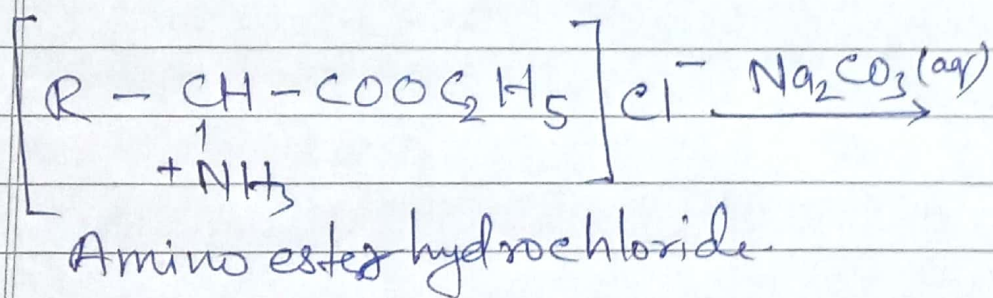 [R - CH - COOC₂H₅]Cl⁻ Na₂CO₃(aq) →
+NH₃
Amino ester hydrochloride.